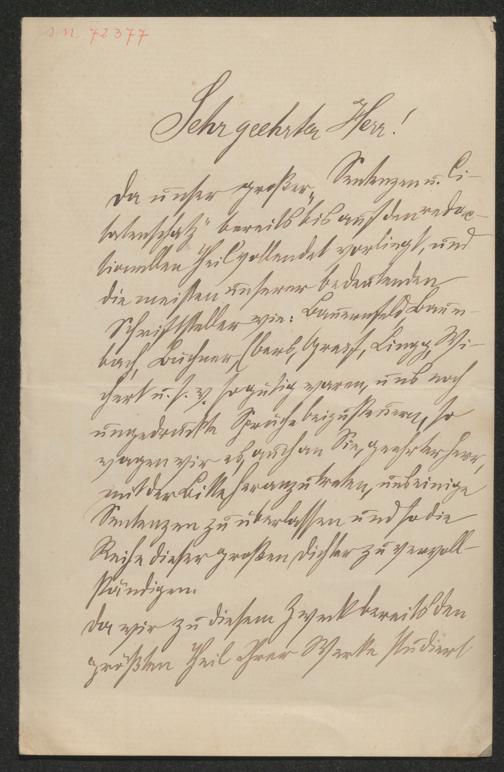 I.N. 72377
Sehr geehrter Herr!
Da unser großer „Sentenzen u. Ci-
tatenschatz" bereits bis auf den redac-
tionellen Theil vollendet vorliegt, und
die meisten unserer bedeutenden
Schriftsteller wie: Bauernfeld, Baum-
bach, Büchner, Ebers, Greif, Lingg, Wi-
chert u. s. w. so gütig waren, uns noch
ungedruckte Sprüche beizusteuern, so
wagen wir es, auch an Sie, geehrter Herr,
mit der Bitte heranzutreten, uns einige
Sentenzen zu überlassen und so die
Reihe dieser großen Dichter zu vervoll-
ständigen.
Da wir zu diesem Zweck bereits den
größten Theil Ihrer Werke studiert